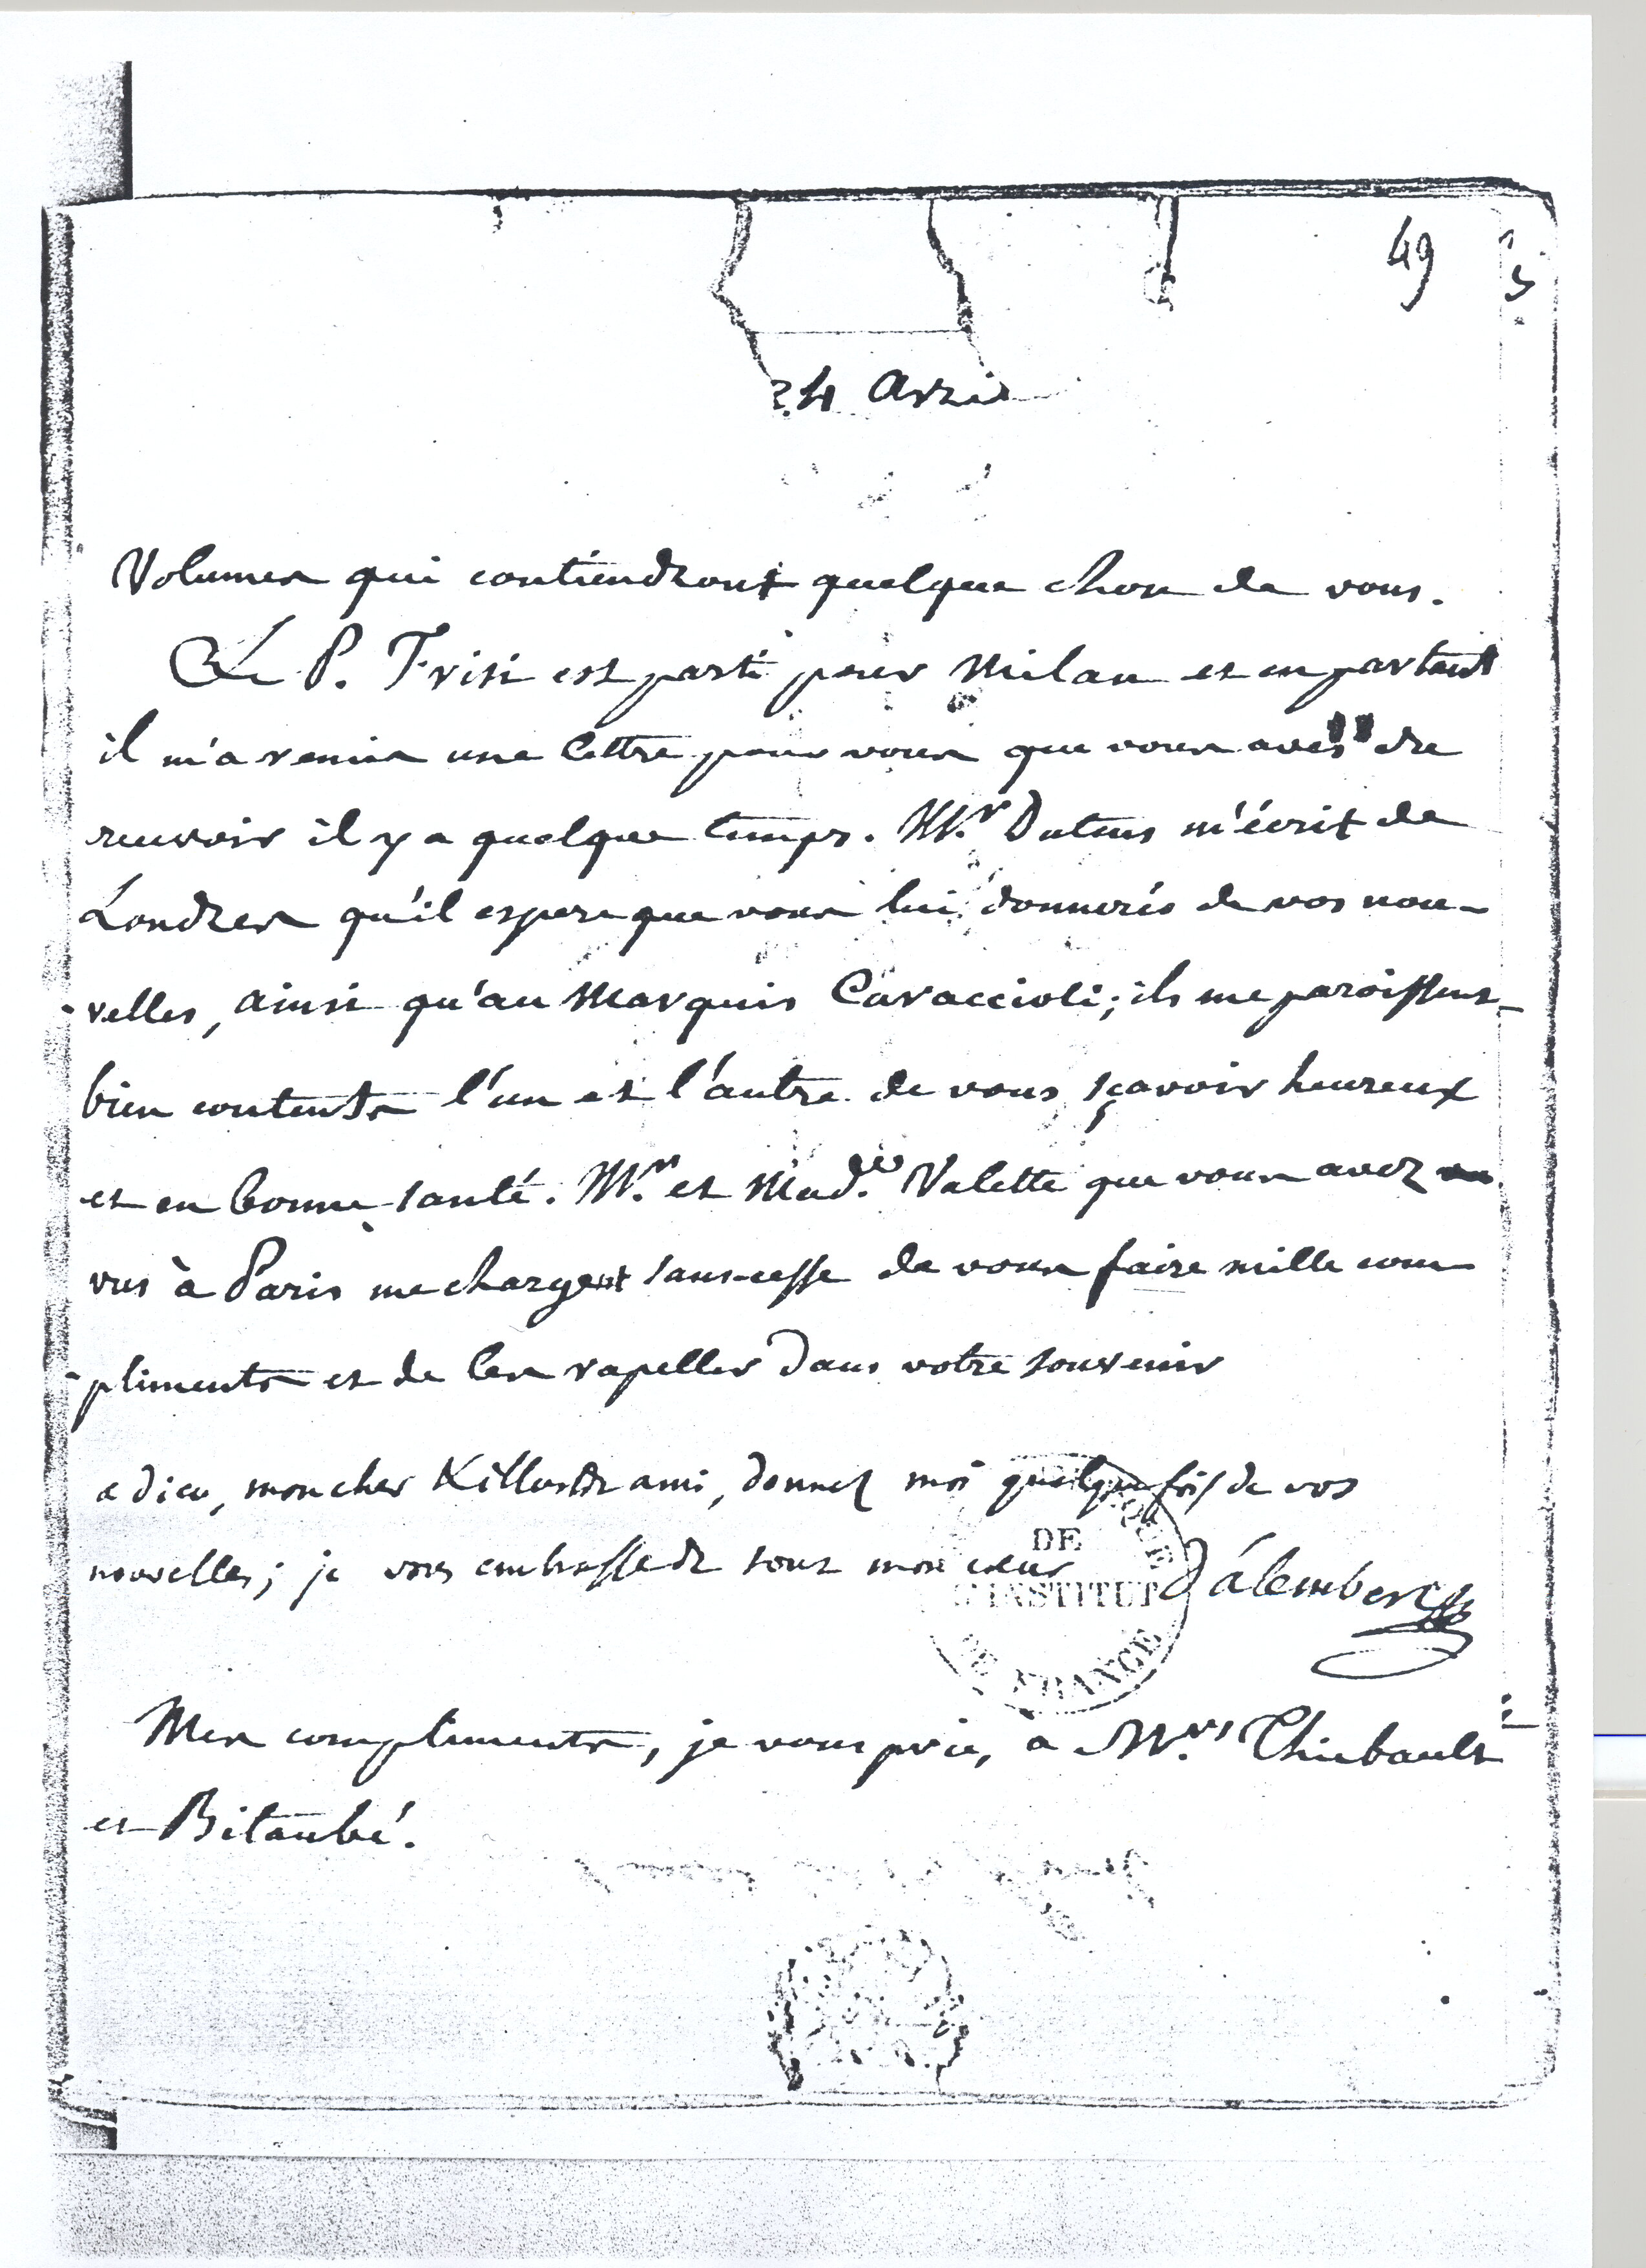 49
24 Avril
Volumes qui contiendront quelque chose de vous.
Le P. Frisi est parti pour Milan et en partant
il m'a remis une lettre pour vous que vous avés du
recevoir il y a quelque temps. Mr. Dutens m'écrit de
Londres qu'il espere que vous lui donnerés de vos nou-
-velles, ainsi qu'au Marquis Caraccioli; ils me paroissent
bien contents l'un et l'autre de vous sçavoir heureux
et en bonne santé. Mr. et Made. Valette que vous avez
vus à Paris me chargent sans-cesse de vous faire mille com
-pliments et de les rapeller dans votre souvenir
adieu, mon cher & illustre ami, donnez moi quelquefois de vos
nouvelles; je vous embrasse de tout mon cœur D'alembert
DE
L'INSTITUT
DE FRANCE
Mes compliments, je vous prie, a Mrs. Thiebault
et Bitaubé.